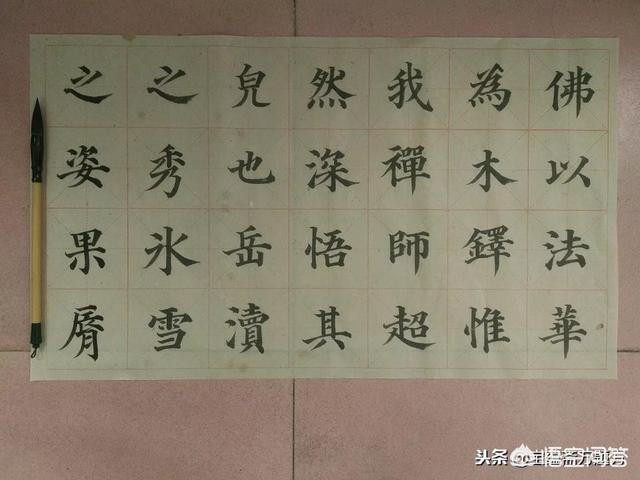 佛以法華
為木鐸惟
我禪師超
然深悟其
皃也岳瀆
之秀氷雪
之姿果脣
头条
悟空问答